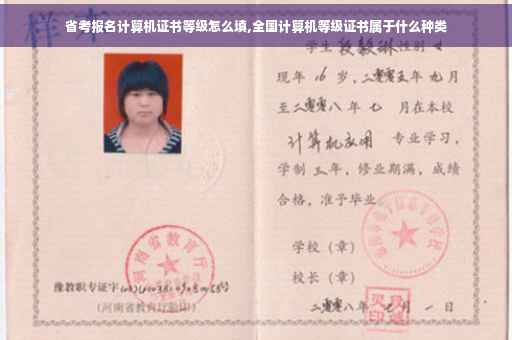 省考报名计算机证书等级怎么填,全国计算机等级证书属于什么种类
样本
学生段毅琳性别女
现年16岁,二零零五年九月
至二零零八年七月在本校
计算机应用 专业学习,
学制三年,修业期满,成绩
合格,准予毕业
学校(章)
校长(章)
豫教职专证字
(河南省教育厅验印)
河南省教育厅
二零零八年七月一日